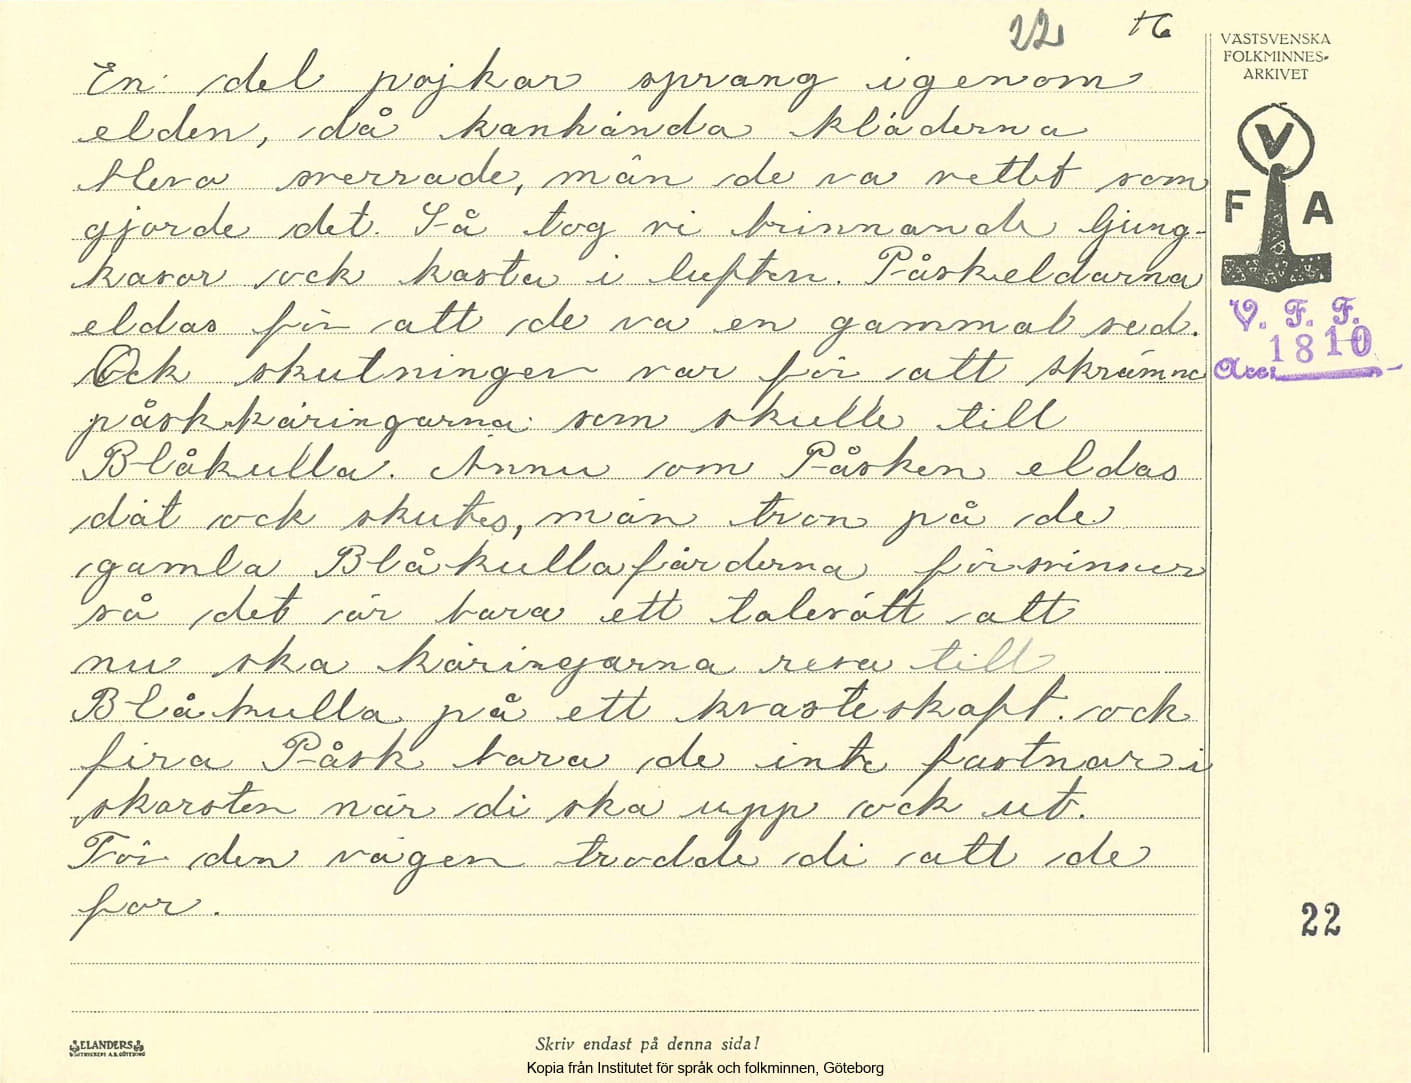 22 16
VÄSTSVENSKA
FOLKMINNES-
ARKIVET
V
F A
V. F. F.
Acc: 1810
En del pojkar sprang igenom
elden, då kanhända kläderna
bleva sverrade, män de va rettet som
gjorde det. Så tog vi brinnande ljung-
kasor ock kasta i luften. Påskeldarna
eldas för att de va en gammal sed.
Ock skutningen var för att skrämma
påskkäringarna som skulle till
Blåkulla. Ännu om Påsken eldas
dät ock skutes, män tron på de
gamla Blåkullafärderna försvinner
så det är bara ett talesätt att
nu ska käringarna resa till
Blåkulla på ett kvasteskaft. ock
fira Påsk bara de inte fastnar i
skorsten när di ska upp ock ut.
För den vägen trodde di att de
for.
22
ELANDERS
Skriv endast på denna sida!
Kopia från Institutet för språk och folkminnen, Göteborg